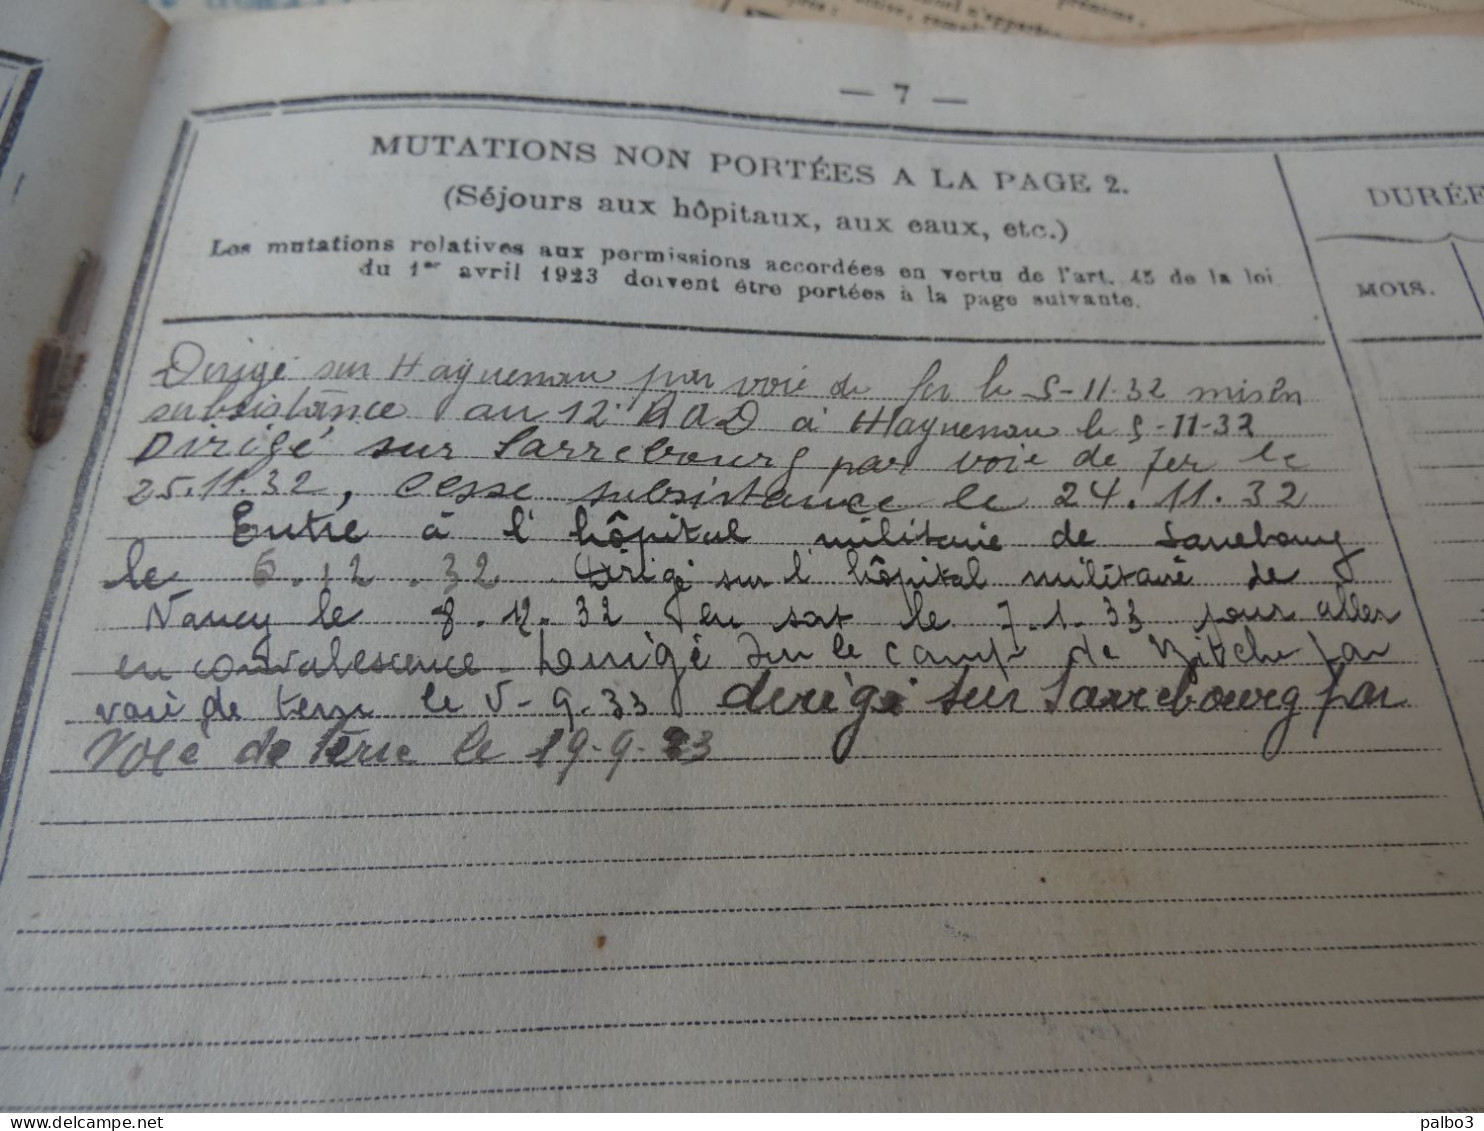 — 7 —
MUTATIONS NON PORTÉES A LA PAGE 2.
(Séjours aux hôpitaux, aux eaux, etc.)
Les mutations relatives aux permissions accordées en vertu de l'art. 45 de la loi
du 1er avril 1923 doivent être portées à la page suivante.
DURÉE
MOIS.
Dirigé sur Haguenau par voie de fer le 5-11-32 mis en
subsistance au 12 RAD à Haguenau le 5-11-32
Dirigé sur Sarrebourg par voie de fer le
25.11.32, cesse subsistance le 24.11.32
Entré à l'hôpital militaire de Sarrebourg
le 6.12.32 dirigé sur l'hôpital militaire de
Nancy le 8.12.32 en sort le 7.1.33 pour aller
en convalescence. Dirigé sur le camp de Bitche par
voie de terre le 5-9.33 dirigé sur Sarrebourg par
Voie de terre le 19-9-33
palbo3